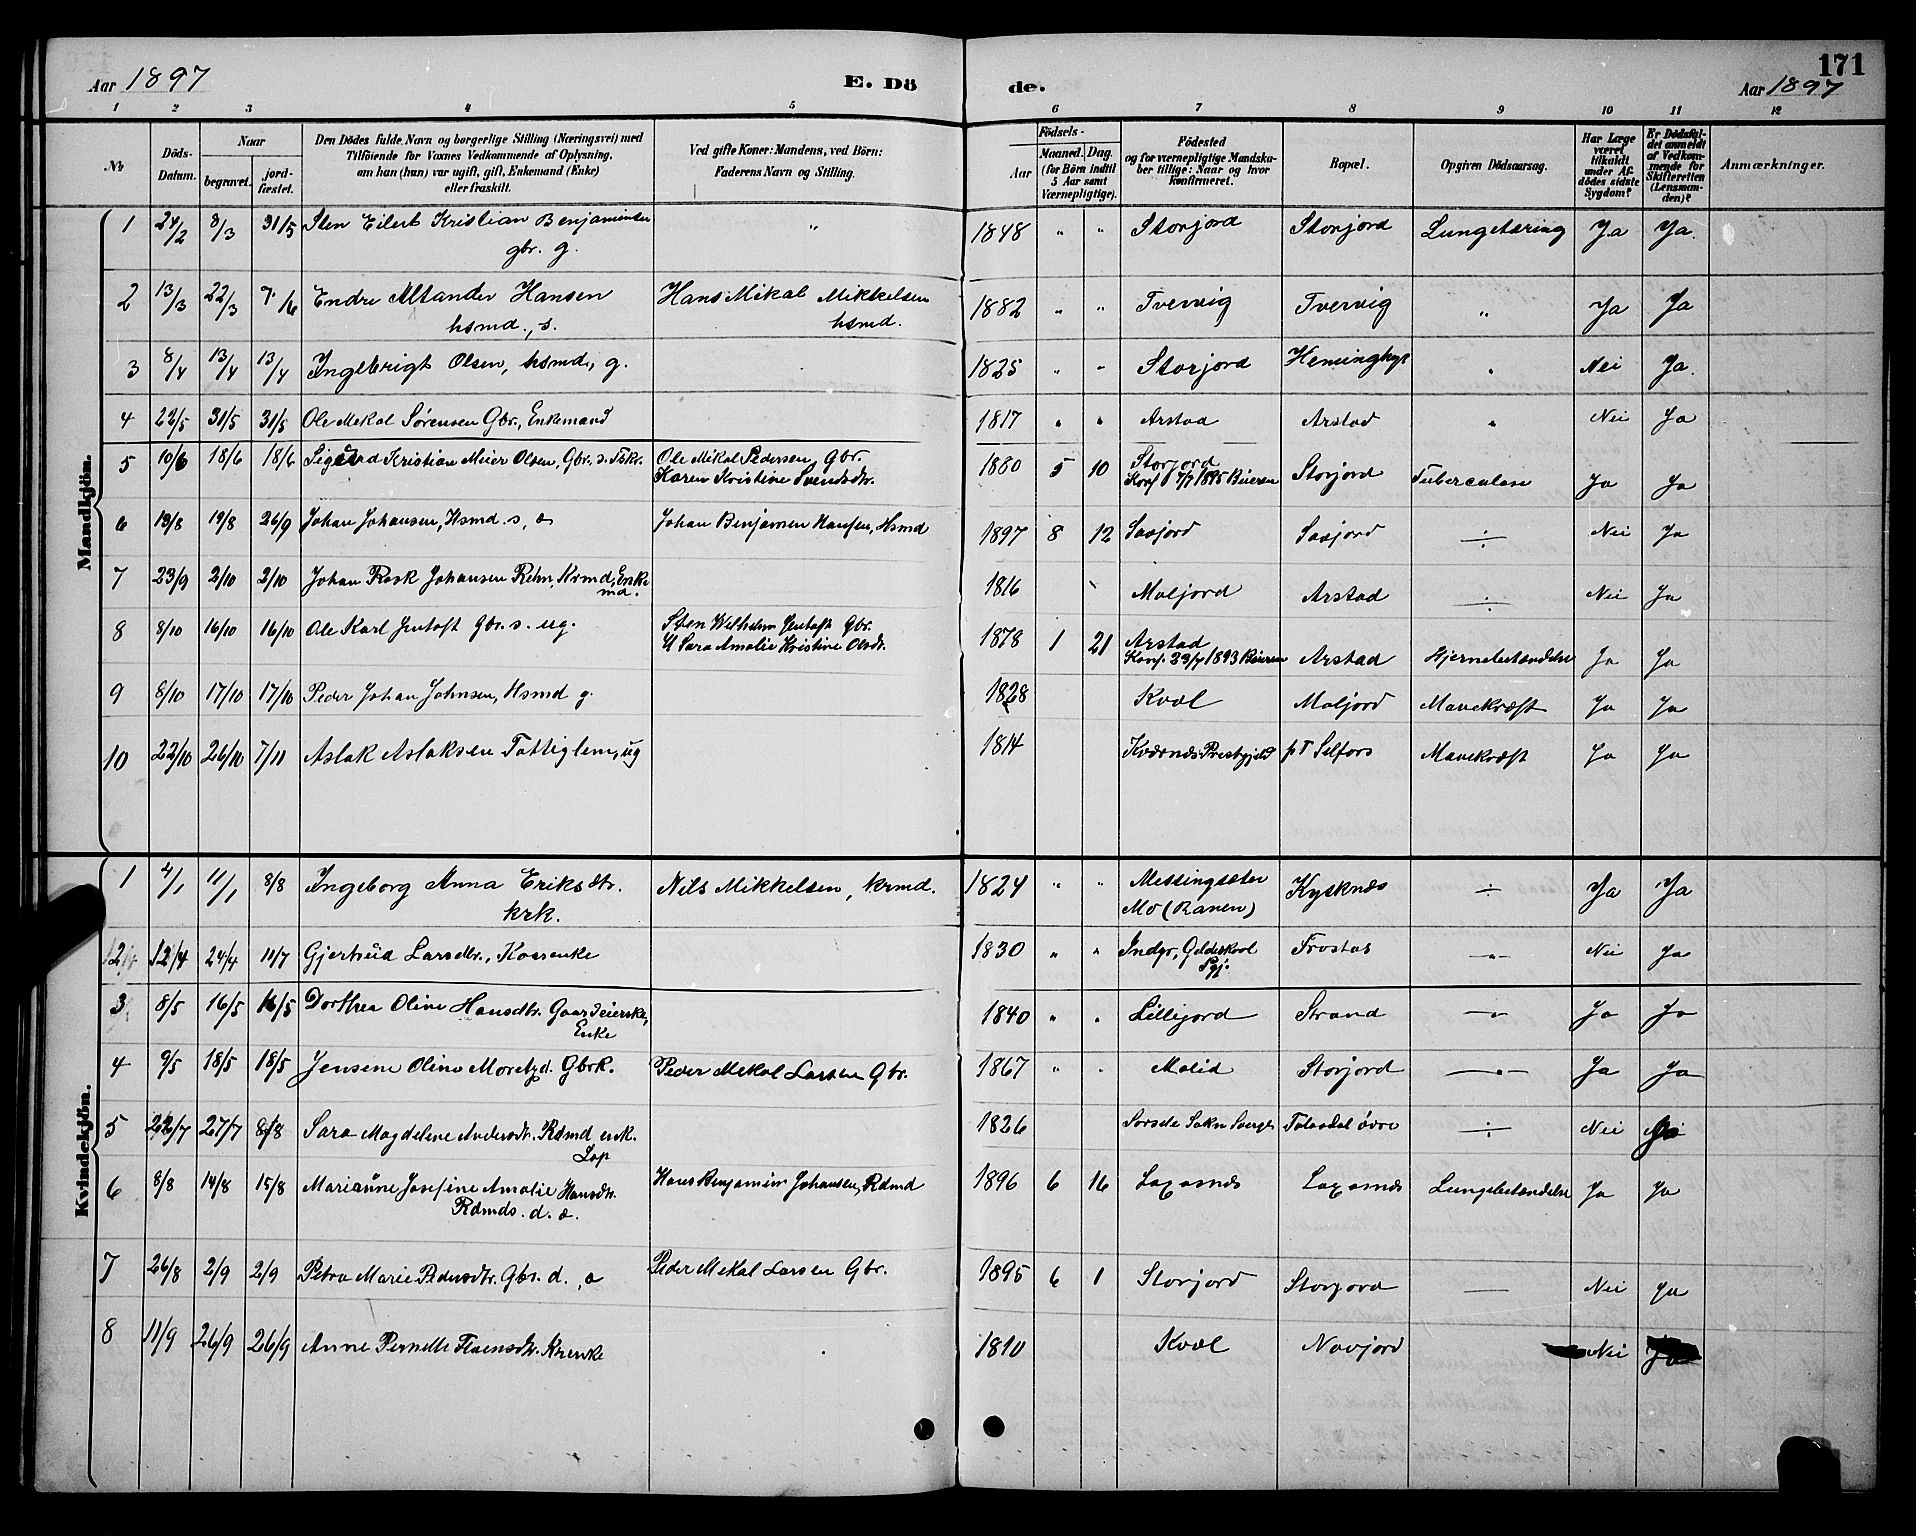 171
Aar 1897 E. Dö de. Aar 1897
1 2 3 4 5 6 7 8 9 10 11 12
№ Döds-Datum. Naar begravet. jord-fæstet. Den Dödes fulde Navn og borgerlige Stilling (Næringsvei) med Tilföiende for Voxnes Vedkommende af Oplysning, om han (hun) var ugift, gift, Enkemand (Enke) eller fraskilt. Ved gifte Koner: Mandens, ved Börn: Faderens Navn og Stilling. Födsels- Aar Maaned. Dag. (for Börn indtil 5 Aar samt Værnepligtige). Födested og for værnepligtige Mandskaber tillige: Naar og hvor konfirmeret. Bopæl. Opgiven Dödsaarsag. Har Læge været tilkaldt under Afdödes sidste Sygdom? Er Dödsfaldet anmeldt af Vedkommende for Skifteretten (Lensmanden)? Anmærkninger.
Mandkjön.
1 24/2 8/3 31/5 Sten Eilert Kristian Benjaminsen " 1848 " " Storjord Storjord Lungetæring Ja Ja.
gbr. g.
2 13/3 22/3 7/6 Endre Altander Hansen Hans Mikal Mikkelsen 1882 " " Tvervig Tvervig " Ja Ja
hsmd., s. hsmd.
3 8/4 13/4 13/4 Ingebrigt Olsen, hsmd, g. 1825 " " Storjord Heminghyt " Nei Ja.
4 22/5 31/5 31/5 Ole Mekal Sørensen Gbr., Enkemand 1817 " " Arstad Arstad " Nei Ja
5 10/6 18/6 18/6 Sigurd Kristian Meier Olsen, Gbr. s. Fskr. Ole Mikal Pedersen, Gbr. 1880 5 10 Storjord Storjord Tuberculose Ja Ja
Karen Kristine Svendsdtr. Konf 7/7 1895 Beieren
6 13/8 19/8 26/9 Johan Johansen, Hsmd. s, æ Johan Benjamen Hansen, Hsmd 1897 8 12 Saxjord Saxjord ÷ Nei Ja
7 23/9 2/10 2/10 Johan Rask Johansen Rehn, Krmd, Enke 1816 Moljord Arstad ÷ Nei Ja
md.
8 8/10 16/10 16/10 Ole Karl Jentoft Gbr. s. ug. Sten Wilhelm Jentoft Gbr. 1878 1 21 Arstad Arstad Hjernebetændelse Ja Ja
Sara Amalie Kristine Olsdtr. Konf. 23/7 1893 Beieren
9 8/10 17/10 17/10 Peder Johan Johnsen, Hsmd g. 1828 Kvæl Moljord Mavekræft Ja Ja
10 22/10 26/10 7/11 Aslak Aslaksen Fattiglem, ug 1814 Kværnes Prestgjeld pT Selfors Mavekræft Ja Ja
Kvindekjön.
1 4/1 11/1 8/8 Ingeborg Anna Eriksdtr. Nils Mikkelsen, krmd. 1824 " " Messingsæter Kysknæs ÷ Ja Ja
krk. Mo (Ranen)
2 12/4 24/4 11/7 Gjertrud Larsdtr., Kaarenke 1830 " " Indgr, Gildeskaal Frostas " Nei Ja
Pgj.
3 8/5 16/5 16/5 Dorthea Oline Hansdtr. Gaardeierske, 1840 " " Lillejord Strand " Ja Ja
Enke
4 9/5 18/5 18/5 Jensine Oline Moretzd. Gbrk. Peder Mekal Larsen Gbr. 1867 " " Molid Storjord " Ja Ja
5 22/7 27/7 8/8 Sara Magdelene Andersdtr. Rdmd enk. 1826 Sorsele Sokn Sverge Tolaadal øvre ÷ Nei
Lap
6 8/8 14/8 15/8 Marianne Josefine Amalie Hansdtr. Hans Benjamin Johansen, Rdmd 1896 6 16 Laxosnæs Laxosnæs Lungebetændelse Ja Ja
Rdmds. d. æ.
7 26/8 2/9 2/9 Petra Marie Pedersdtr. Gbr. d., æ Peder Mekal Larsen Gbr. 1895 6 1 Storjord Storjord — Nei Ja
8 11/9 26/9 26/9 Anne Pernelle 1810 Kvæl Novjord Nei Ja